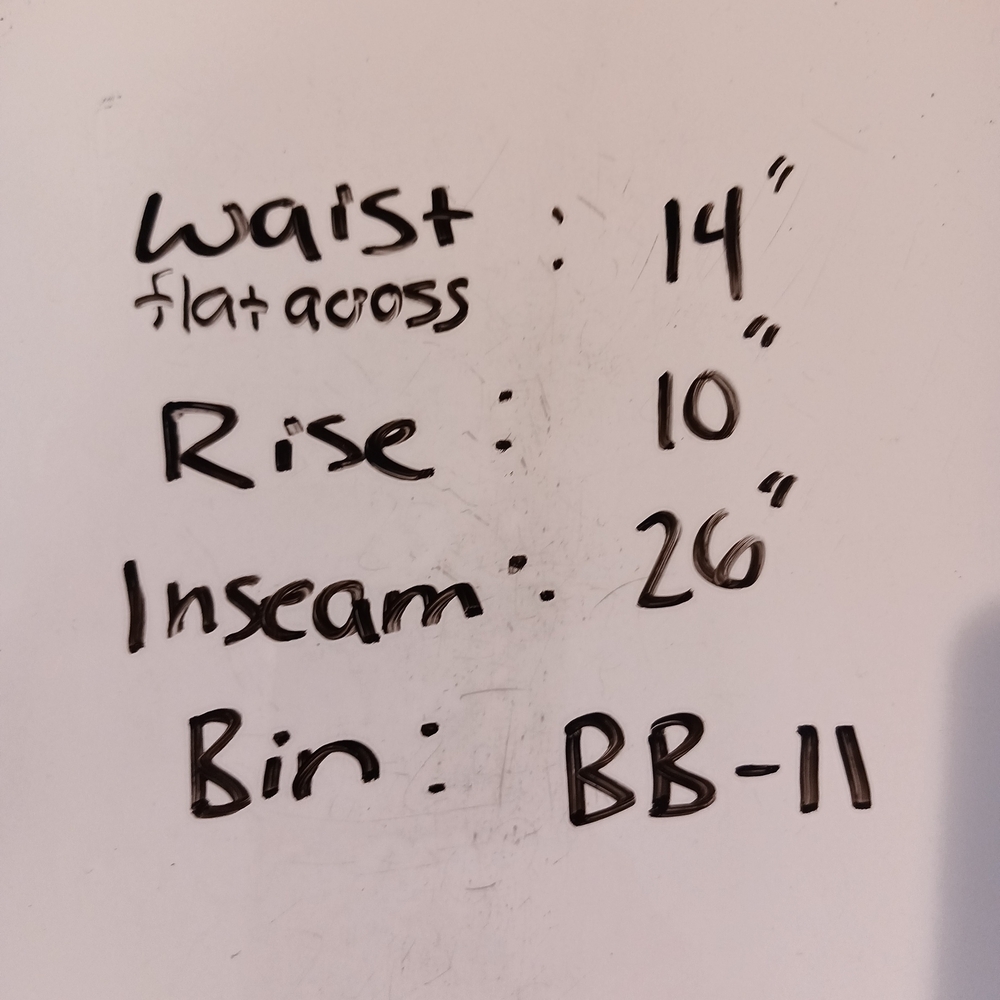 Waist : 14"
flat across
Rise : 10"
Inseam : 26"
Bin : BB-11